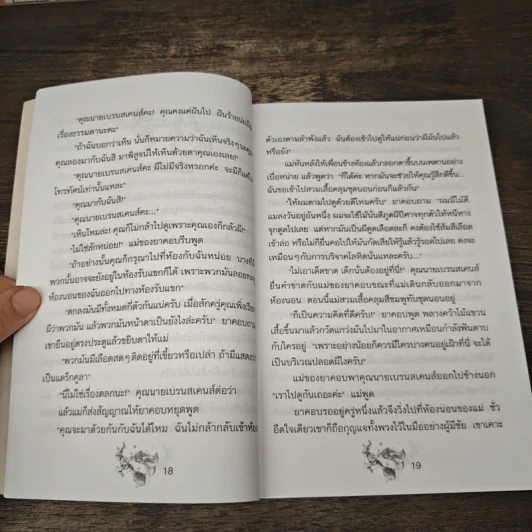 "คุณนายเบรนสเคนส์คะ! คุณคงแค่ฝันไป ฝันร้ายน่ะเป็น
เรื่องธรรมดานะคะ"
"ถ้าฉันบอกว่าเห็น นั่นก็หมายความว่าฉันเห็นจริงๆ
คุณลองมากับฉันสิ มาพิสูจน์ให้เห็นด้วยตาคุณเองเลย!"
"คุณนายเบรนสเคนส์คะ ผีไม่มีจริงหรอกค่ะ จะมีก็แต่
โทรทัศน์เท่านั้นแหละ"
"คุณมากับฉันสิ!"
"คุณนายเบรนสเคนส์คะ..."
"เห็นไหมล่ะ! คุณก็ไม่กล้าไปดูเพราะคุณเองก็กลัวผี!"
"ไม่ใช่สักหน่อย!" แม่ของยาคอบรีบพูด
"ถ้าอย่างนั้นคุณก็กรุณาไปที่ห้องกับฉันหน่อย บางที
พวกมันอาจจะยังอยู่ในห้องรับแขกก็ได้ เพราะพวกมันลอย
ห้องนอนของฉันออกไปทางห้องรับแขก"
"ตกลงมันมีทั้งหมดกี่ตัวกันแน่ครับ เมื่อสักครู่คุณเพิ่ง
ผีว่าพวกมัน แล้วพวกมันหน้าตาเป็นยังไงล่ะครับ" ยาคอบถาม
เขายืนอยู่ตรงประตูแล้วขยิบตาให้แม่
"พวกมันมีเลือดสดๆ ติดอยู่ที่เขี้ยวหรือเปล่า ถ้ามีแสดงว่า
เป็นแดร็กคูลา"
"นี่ไม่ใช่เรื่องตลกนะ!" คุณนายเบรนสเคนส์ต่อว่า
แล้วแม่ก็ส่งสัญญาณให้ยาคอบหยุดพูด
"คุณจะมาด้วยกันกับฉันได้ไหม ฉันไม่กล้ากลับเข้าห้อง
18
ตัวเองตามลำพังแล้ว ฉันต้องเข้าไปดูให้แน่ก่อนว่าผีมันไปแล้ว
หรือยัง"
แม่หันหลังให้เพื่อนข้างห้องแล้วกลอกตาขึ้นบนเพดานอย่าง
เบื่อหน่าย แล้วพูดว่า "ก็ได้ค่ะ หากมันจะช่วยให้คุณรู้สึกดีขึ้น...
ฉันขอเข้าไปสวมเสื้อคลุมชุดนอนก่อนก็แล้วกัน"
"ให้ผมตามไปดูด้วยดีไหมครับ" ยาคอบถาม "ผมมีไม้ตี
แมลงวันอยู่อันหนึ่ง ผมจะใช้ไม้นั่นตีภูตผีปีศาจทุกตัวให้หนีทาง
จุกตูดไปเลย แต่หากมันเป็นผีดูดเลือดละก็ คงต้องใช้ส้มสีเลือด
เข้าล่อ หรือไม่ก็ยื่นคอไปให้มันกัดเสียให้รู้แล้วรู้รอดไปเลย คงจะ
เหมือนๆ กับการบริจาคโลหิตนั่นแหละครับ..."
"ไม่เอาเด็ดขาด เด็กนั่นต้องอยู่ที่นี่!" คุณนายเบรนสเคนส์
ยื่นคำขาดกับแม่ของยาคอบขณะที่แม่เดินกลับออกมาจาก
ห้องนอน ตอนนี้แม่สวมเสื้อคลุมสีชมพูทับชุดนอนอยู่
"ก็เป็นความคิดที่ดีครับ!" ยาคอบพูด พลางคว้าไม้แขวน
เสื้อขึ้นมาแล้วกวัดแกว่งมันไปมาในอากาศเหมือนกำลังฟันดาบ
กับใครอยู่ "เพราะอย่างน้อยก็ควรมีใครบางคนอยู่เฝ้าที่นี่ จะได้
เป็นบริเวณปลอดผีไงครับ"
แม่ของยาคอบพาคุณนายเบรนสเคนส์ออกไปข้างนอก
"เราไปดูกันเถอะค่ะ" แม่พูด
ยาคอบรออยู่ครู่หนึ่งแล้วจึงวิ่งไปที่ห้องนอนของแม่ ชั่ว
อึดใจเดียวเขาก็ถือกุญแจทั้งพวงไว้ในมืออย่างผู้มีชัย เขาเคาะ
19